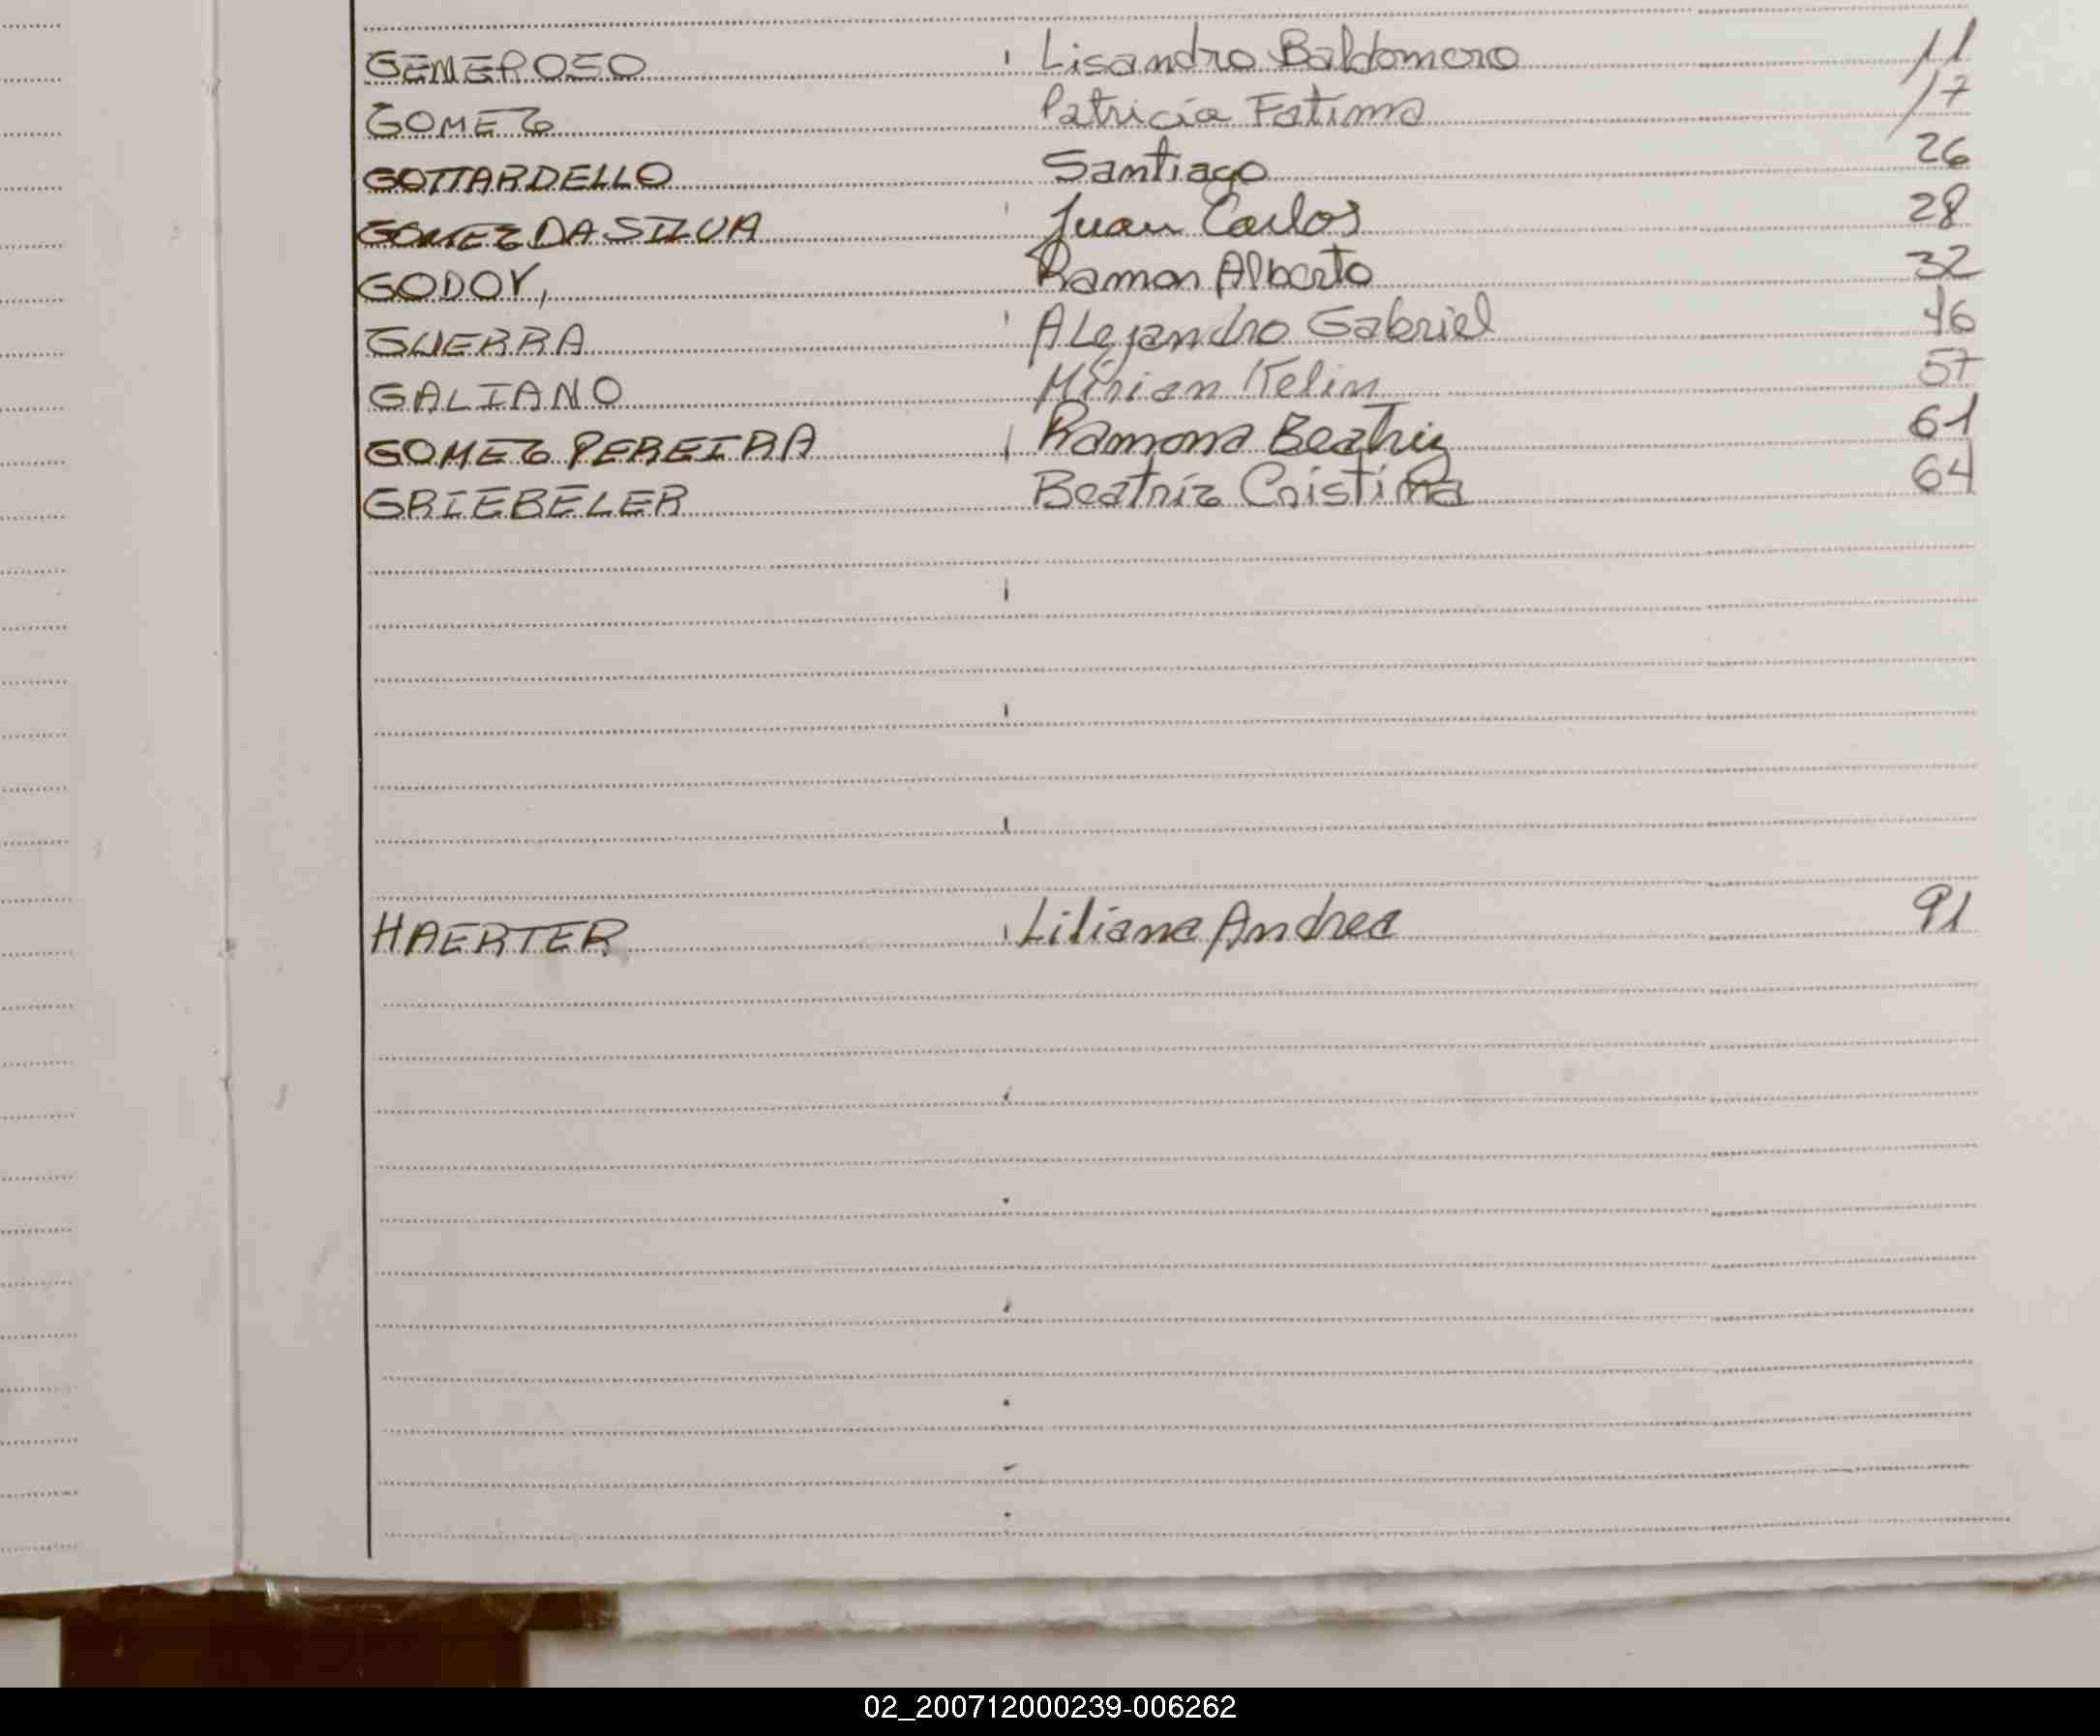 GENEROSO Lisandro Baldomero 11
GOMEZ Patricia Fatima 17
GOTTARDELLO Santiago 26
GOMEZ DA SILVA Juan Carlos 28
GODOY, Ramon Alberto 32
GUERRA ALejandro Gabriel 46
GALIANO Mirian Kelin 57
GOMEZ PEREIRA Ramona Beatriz 61
GRIEBELER Beatriz Cristina 64
HAERTER Liliana Andrea 91
02_200712000239-006262